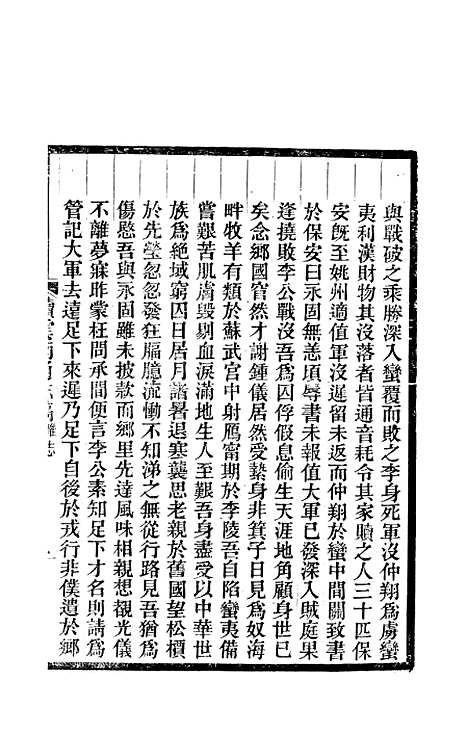 與戰破之乘勝深入蠻覆而敗之李身死軍沒仲翔爲虜蠻
夷利漢財物其沒落者皆通音耗令其家贖之人三十匹保
安旣至姚州適值軍沒遲留未返而仲翔於蠻中間關致書
於保安曰永固無恙頃辱書未報值大軍已發深入賊庭果
逢撓敗李公戰沒吾爲囚俘假息偷生天涯地角顧身世已
矣念鄉國窅然才謝鍾儀居然受縶身非箕子日見爲奴海
畔牧羊有類於蘇武宮中射鴈甯期於李陵吾自陷蠻夷備
嘗艱苦肌膚毀剔血淚滿地生人至艱吾身盡受以中華世
族爲絶域窮囚日居月諸暑退寒襲思老親於舊國望松檟
於先塋忽忽發狂腷臆流慟不知涕之無從行路見吾猶爲
傷愍吾與永固雖未披款而鄉里先達風味相親想覩光儀
不離夢寐昨蒙枉問承間便言李公素知足下才名則請爲
管記大軍去遠足下來遲乃足下自後於戎行非僕遺於鄉
雜志